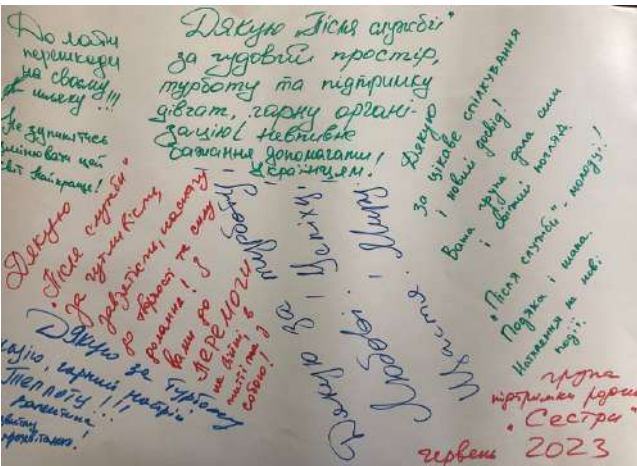 Долати
перешкоди
на своєму
шляху!!!
Не зупинятись
змінювати цей
світ Найкраще!
Дякую „Після служби"
за чудовий простір,
турботу та підтримку
дівчат, гарну органі-
зацію і невпинне
бажання допомагати
Українцям!
Дякую
за цікаве спілкування
і новий досвід!
Ваша група дала сили
і світлий погляд
„Після служби" - молодці!
Подяка і шана.
Натхнення на нові
події.
Дякую
"Після служби"
за чутливість,
завзятість, наснагу
до творчості та силу
долання!
Вами до
ПЕРЕМОГИ
на війні, в
житті та з
собою!
Дякую за турботу
Любові і Успіху
Щастя і Миру
Дякую за турботу
гарний настрій
Теплоту!!!
Валентина
група
підтримки
„Сестри"
червень 2023